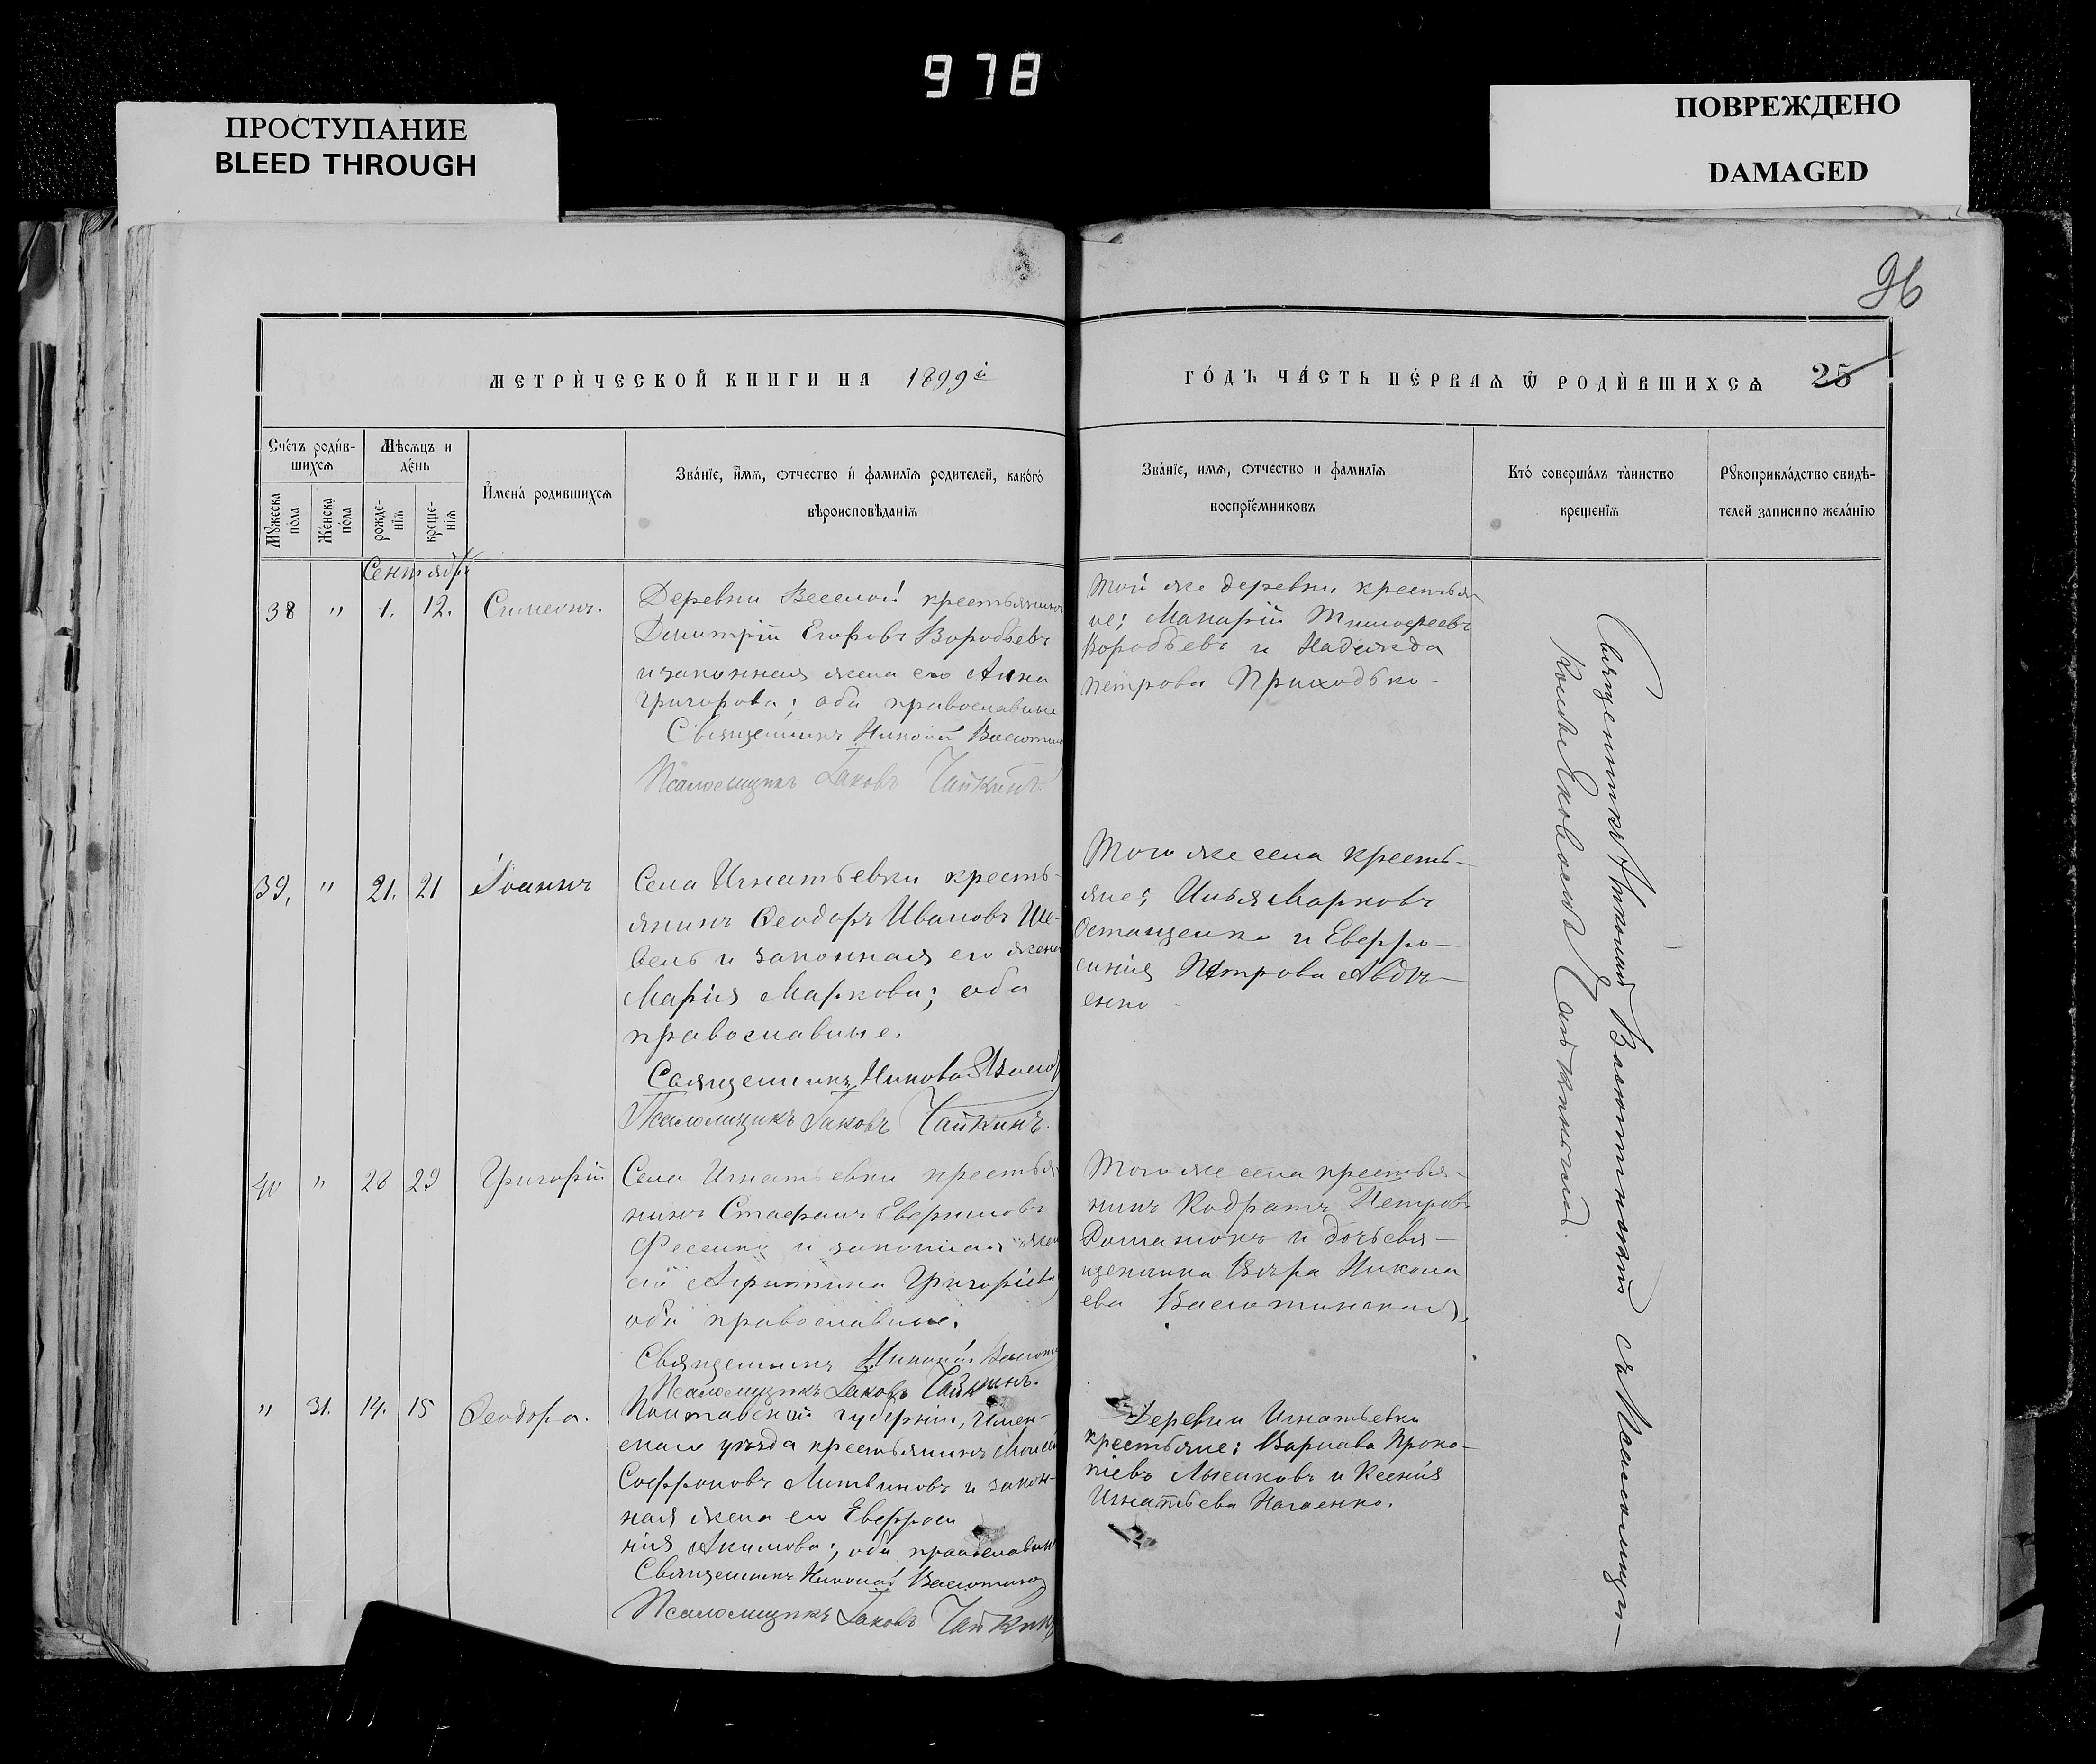 978
ПРОСТУПАНИЕ
BLEED THROUGH
ПОВРЕЖДЕНО
DAMAGED
96
МЕТРИ́ЧЕСКОЙ КНИГИ НА 1899й
ГО́ДЪ ЧА́СТЬ ПЕ́РВАѦ Ѿ РОДИ́ВШИХСѦ 25
Сче́тъ роди́в-
шихсѧ
Мꙋ́жеска
по́ла
Же́нска
по́ла
Мѣсѧцъ и
де́нь
рожде-
нїѧ
креще-
нїѧ
И҆мена́ родившихсѧ
Зва́нїе, и҆́мѧ, ѻтчество и҆ фамилїѧ родителей, како́гѡ
вѣроисповѣданїѧ
Зва́нїе, имѧ, ѻтчество и фамилїѧ
воспрїе́мниковъ
Кто́ соверша́лъ та́инство
крещенїѧ
Рꙋкоприкла́дство свидѣ-
телей записи по жела́нїю
Сентябрь
38 " 1. 12. Симеонъ.
Деревни Веселой крестьянинъ
Димитрій Егоровъ Воробьевъ
и законная жена его Анна
Григорова; оба православные
Священникъ Николай
Псаломщикъ Іаковъ Чайкинъ.
Той же деревни крестья-
не; Макарій Тимофеевъ
Воробьевъ и Надежда
Петрова Приходько.
39. " 21. 21 Іоаннъ
Села Игнатьевки кресть-
янинъ Ѳеодоръ Ивановъ Ше-
вель и законная его жена
Марія Маркова; оба
православные.
Священникъ Николай
Псаломщикъ Іаковъ Чайкинъ.
Того же села кресть-
яне; Илья Марковъ
Остащенко и Евфро-
синія Петрова Авдѣ-
енко
40 " 28 29 Григорій
Села Игнатьевки крестья
нинъ Стефанъ
Фесенко и законная жена
его Агрипина Григоріева
оба православные.
Священникъ Николай
Псаломщикъ Іаковъ Чайкинъ.
Того же села крестья-
нинъ Кодратъ Петровъ
и дочь свя-
щенника Вѣра Никола
ева
" 31. 14. 15 Ѳеодора.
Полтавской губерніи,
скаго уѣзда крестьянинъ
Софроновъ Литвиновъ и закон-
ная жена его Евфроси
нія Акимова; оба православные
Священникъ Николай
Псаломщикъ Іаковъ Чайкинъ
Деревни Игнатьевки
крестьяне: Варнава Проко-
піевъ Лысаковъ и Ксенія
Игнатьева Нагаенко.
Священникъ Николай съ Псаломщи-
комъ Іаковомъ Чайкинымъ.